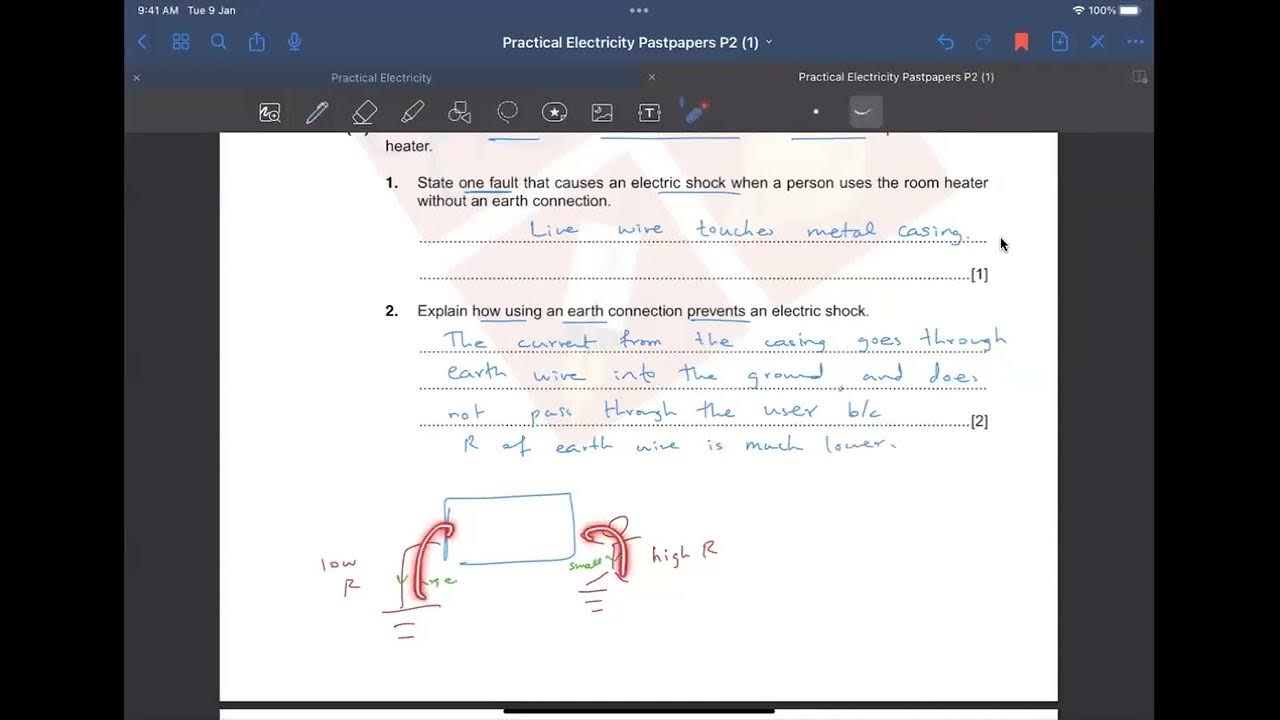 9:41 AM Tue 9 Jan
100%
Practical Electricity Pastpapers P2 (1)
Practical Electricity
Practical Electricity Pastpapers P2 (1)
heater.
1. State one fault that causes an electric shock when a person uses the room heater
without an earth connection.
Live wire touches metal casing.
[1]
2. Explain how using an earth connection prevents an electric shock.
The current from the casing goes through
earth wire into the ground, and does
not pass through the user b/c
[2]
R of earth wire is much lower.
low
R
small
high R